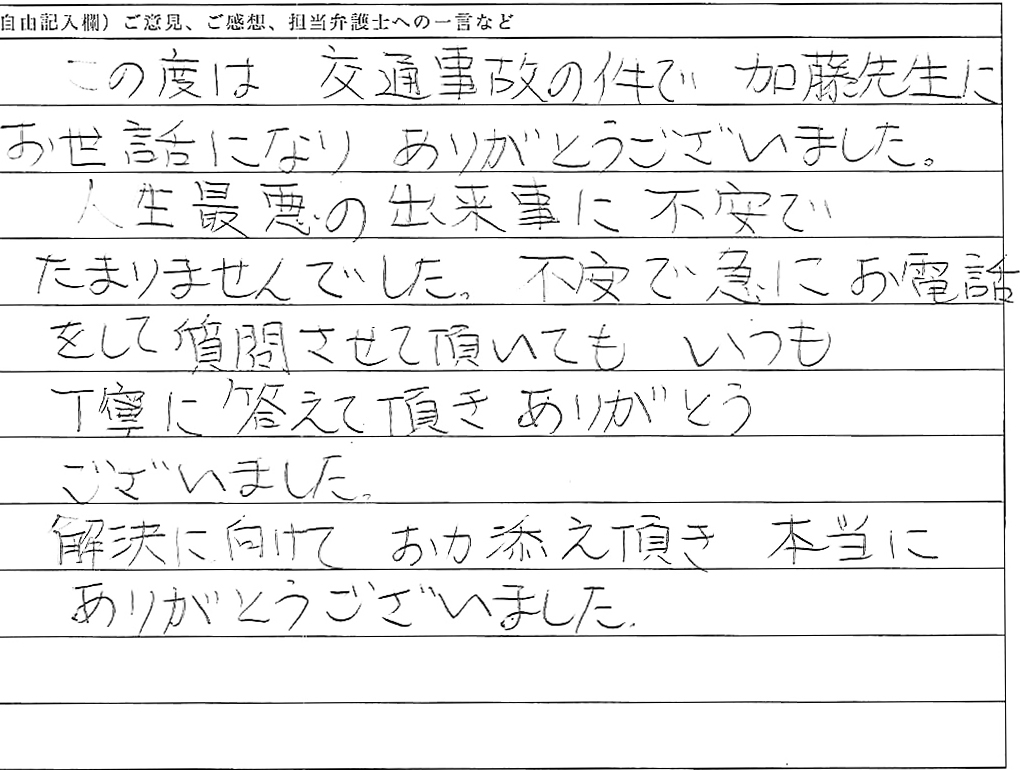 自由記入欄）ご意見、ご感想、担当弁護士への一言など
この度は 交通事故の件で 加藤先生に
お世話になり ありがとうございました。
人生最悪の出来事に 不安で
たまりませんでした。不安で急に お電話
をして質問させて頂いても いつも
丁寧に答えて頂き ありがとう
ございました。
解決に向けて お力添え頂き 本当に
ありがとうございました。